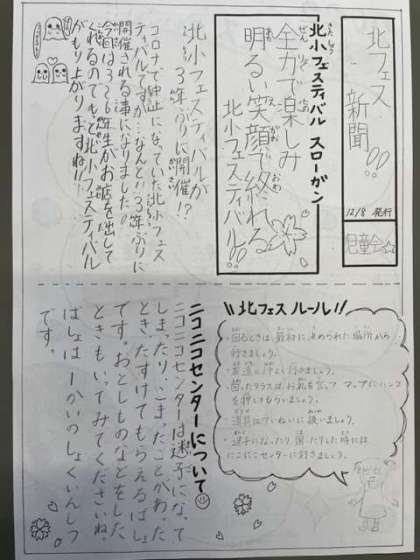 北フェス
新聞!!
12/8 発行
児童会
北小フェスティバル スローガン
全力で楽しみ
明るい笑顔で終れる
北小フェスティバル!!
北小フェスティバルが
3年ぶりに開催!?
コロナで中止になっていた北小フェス
ティバルですが…なんと!!3年ぶりに
開催される事になりました!!
今回は3〜6年生がお店を出して
くれるのでもっと北小フェスティバル
がもり上がりますね!!
北フェス ルール!!
・回るときは、最初に決められた場所から
行きましょう。
・友達と仲よく行きましょう。
・回ったクラスは、お礼を言ってマップにハンコ
を押してもらいましょう。
・道具はていねいに扱いましょう。
・迷子になったり、困ったりした時には
にこにこセンターに行きましょう。
ニコニコセンターについて
ニコニコセンターは迷子になって
しまったり、こまったことがあった
とき、たすけてもらえるばしょ
です。おとしものなどをした
ときもいってみてくださいね。
ばしょは一かいのしょくいんしつ
です。